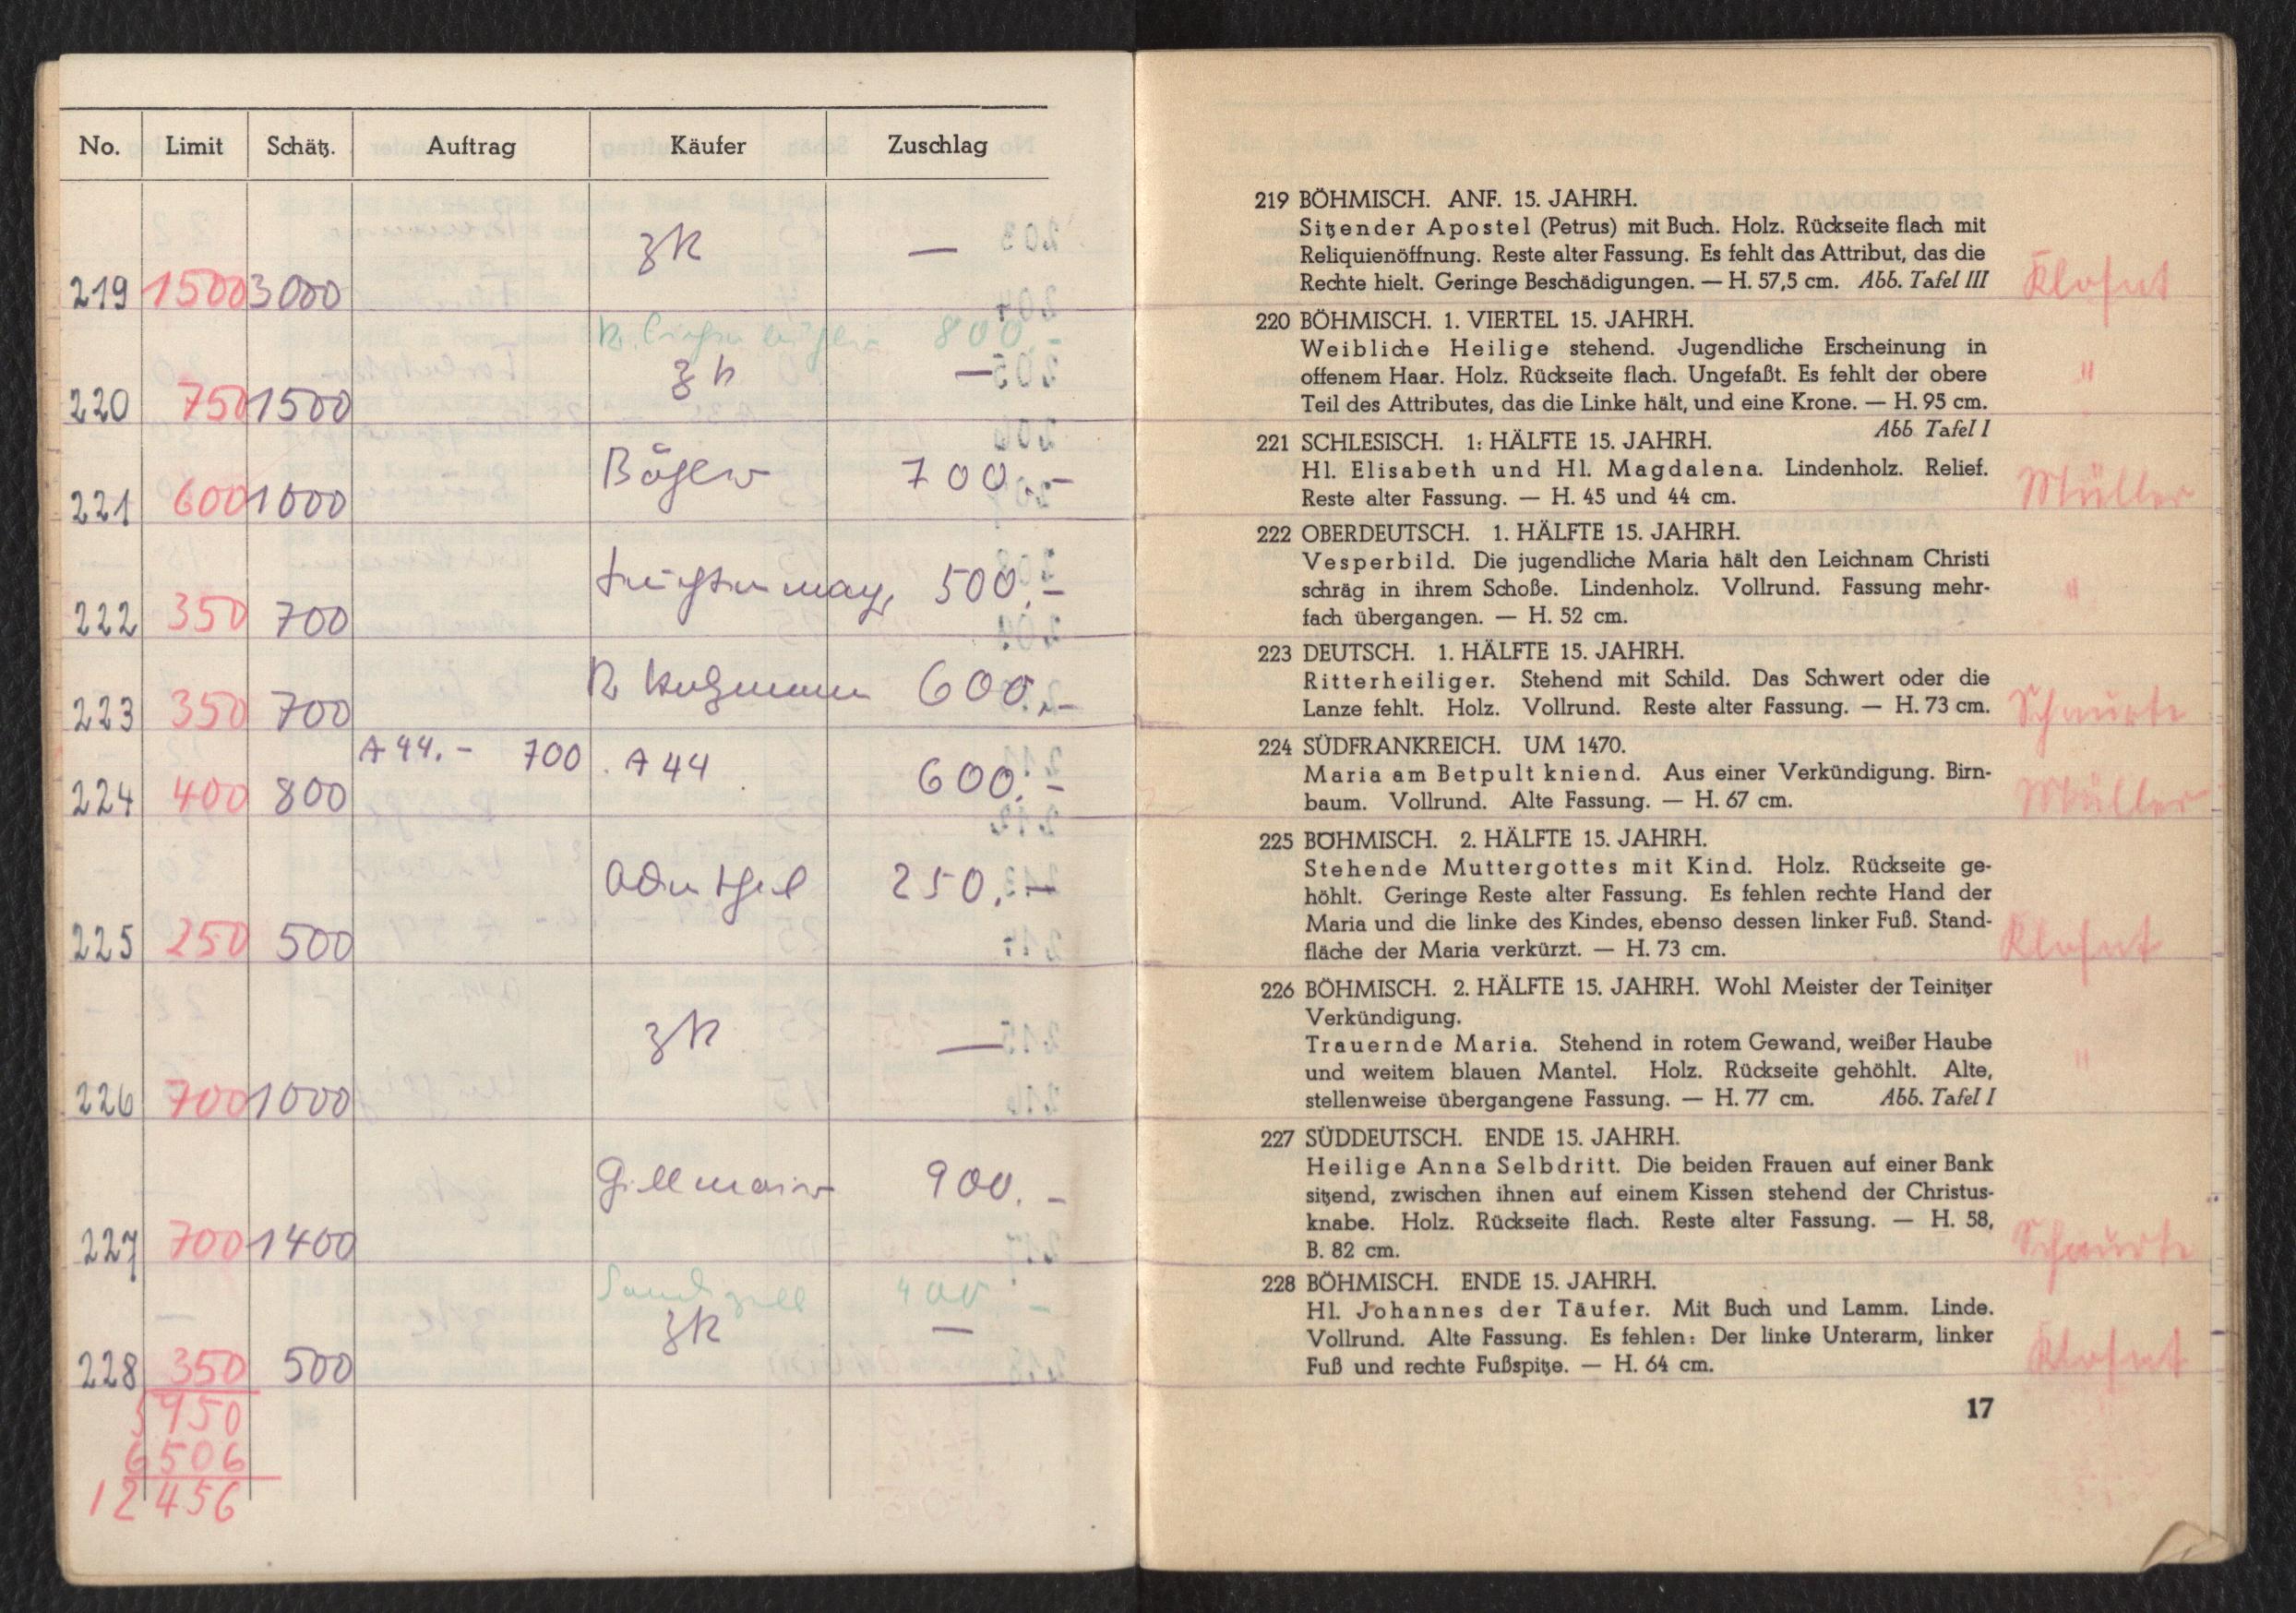 No. Limit Schätz. Auftrag Käufer Zuschlag
zk —
219 1500 3000
800.-
zk —
220 750 1500
700.-
221 600 1000
500.-
222 350 700
600.-
223 350 700
A 44.- 700 A 44 600.-
224 400 800
250.-
225 250 500
zk —
226 700 1000
900.-
227 700 1400
400 -
zk —
228 350 500
5950
6506
12456
219 BÖHMISCH. ANF. 15. JAHRH.
Sitzender Apostel (Petrus) mit Buch. Holz. Rückseite flach mit
Reliquienöffnung. Reste alter Fassung. Es fehlt das Attribut, das die
Rechte hielt. Geringe Beschädigungen. — H. 57,5 cm. Abb. Tafel III
220 BÖHMISCH. 1. VIERTEL 15. JAHRH.
Weibliche Heilige stehend. Jugendliche Erscheinung in
offenem Haar. Holz. Rückseite flach. Ungefaßt. Es fehlt der obere "
Teil des Attributes, das die Linke hält, und eine Krone. — H. 95 cm.
Abb. Tafel I
221 SCHLESISCH. 1. HÄLFTE 15. JAHRH.
Hl. Elisabeth und Hl. Magdalena. Lindenholz. Relief. Müller
Reste alter Fassung. — H. 45 und 44 cm.
222 OBERDEUTSCH. 1. HÄLFTE 15. JAHRH.
Vesperbild. Die jugendliche Maria hält den Leichnam Christi
schräg in ihrem Schoße. Lindenholz. Vollrund. Fassung mehr- "
fach übergangen. — H. 52 cm.
223 DEUTSCH. 1. HÄLFTE 15. JAHRH.
Ritterheiliger. Stehend mit Schild. Das Schwert oder die
Lanze fehlt. Holz. Vollrund. Reste alter Fassung. — H. 73 cm.
224 SÜDFRANKREICH. UM 1470.
Maria am Betpult kniend. Aus einer Verkündigung. Birn-
baum. Vollrund. Alte Fassung. — H. 67 cm. Müller
225 BÖHMISCH. 2. HÄLFTE 15. JAHRH.
Stehende Muttergottes mit Kind. Holz. Rückseite ge-
höhlt. Geringe Reste alter Fassung. Es fehlen rechte Hand der
Maria und die linke des Kindes, ebenso dessen linker Fuß. Stand-
fläche der Maria verkürzt. — H. 73 cm.
226 BÖHMISCH. 2. HÄLFTE 15. JAHRH. Wohl Meister der Teinitzer
Verkündigung.
Trauernde Maria. Stehend in rotem Gewand, weißer Haube
und weitem blauen Mantel. Holz. Rückseite gehöhlt. Alte, "
stellenweise übergangene Fassung. — H. 77 cm. Abb. Tafel I
227 SÜDDEUTSCH. ENDE 15. JAHRH.
Heilige Anna Selbdritt. Die beiden Frauen auf einer Bank
sitzend, zwischen ihnen auf einem Kissen stehend der Christus-
knabe. Holz. Rückseite flach. Reste alter Fassung. — H. 58,
B. 82 cm.
228 BÖHMISCH. ENDE 15. JAHRH.
Hl. Johannes der Täufer. Mit Buch und Lamm. Linde.
Vollrund. Alte Fassung. Es fehlen: Der linke Unterarm, linker
Fuß und rechte Fußspitze. — H. 64 cm.
17